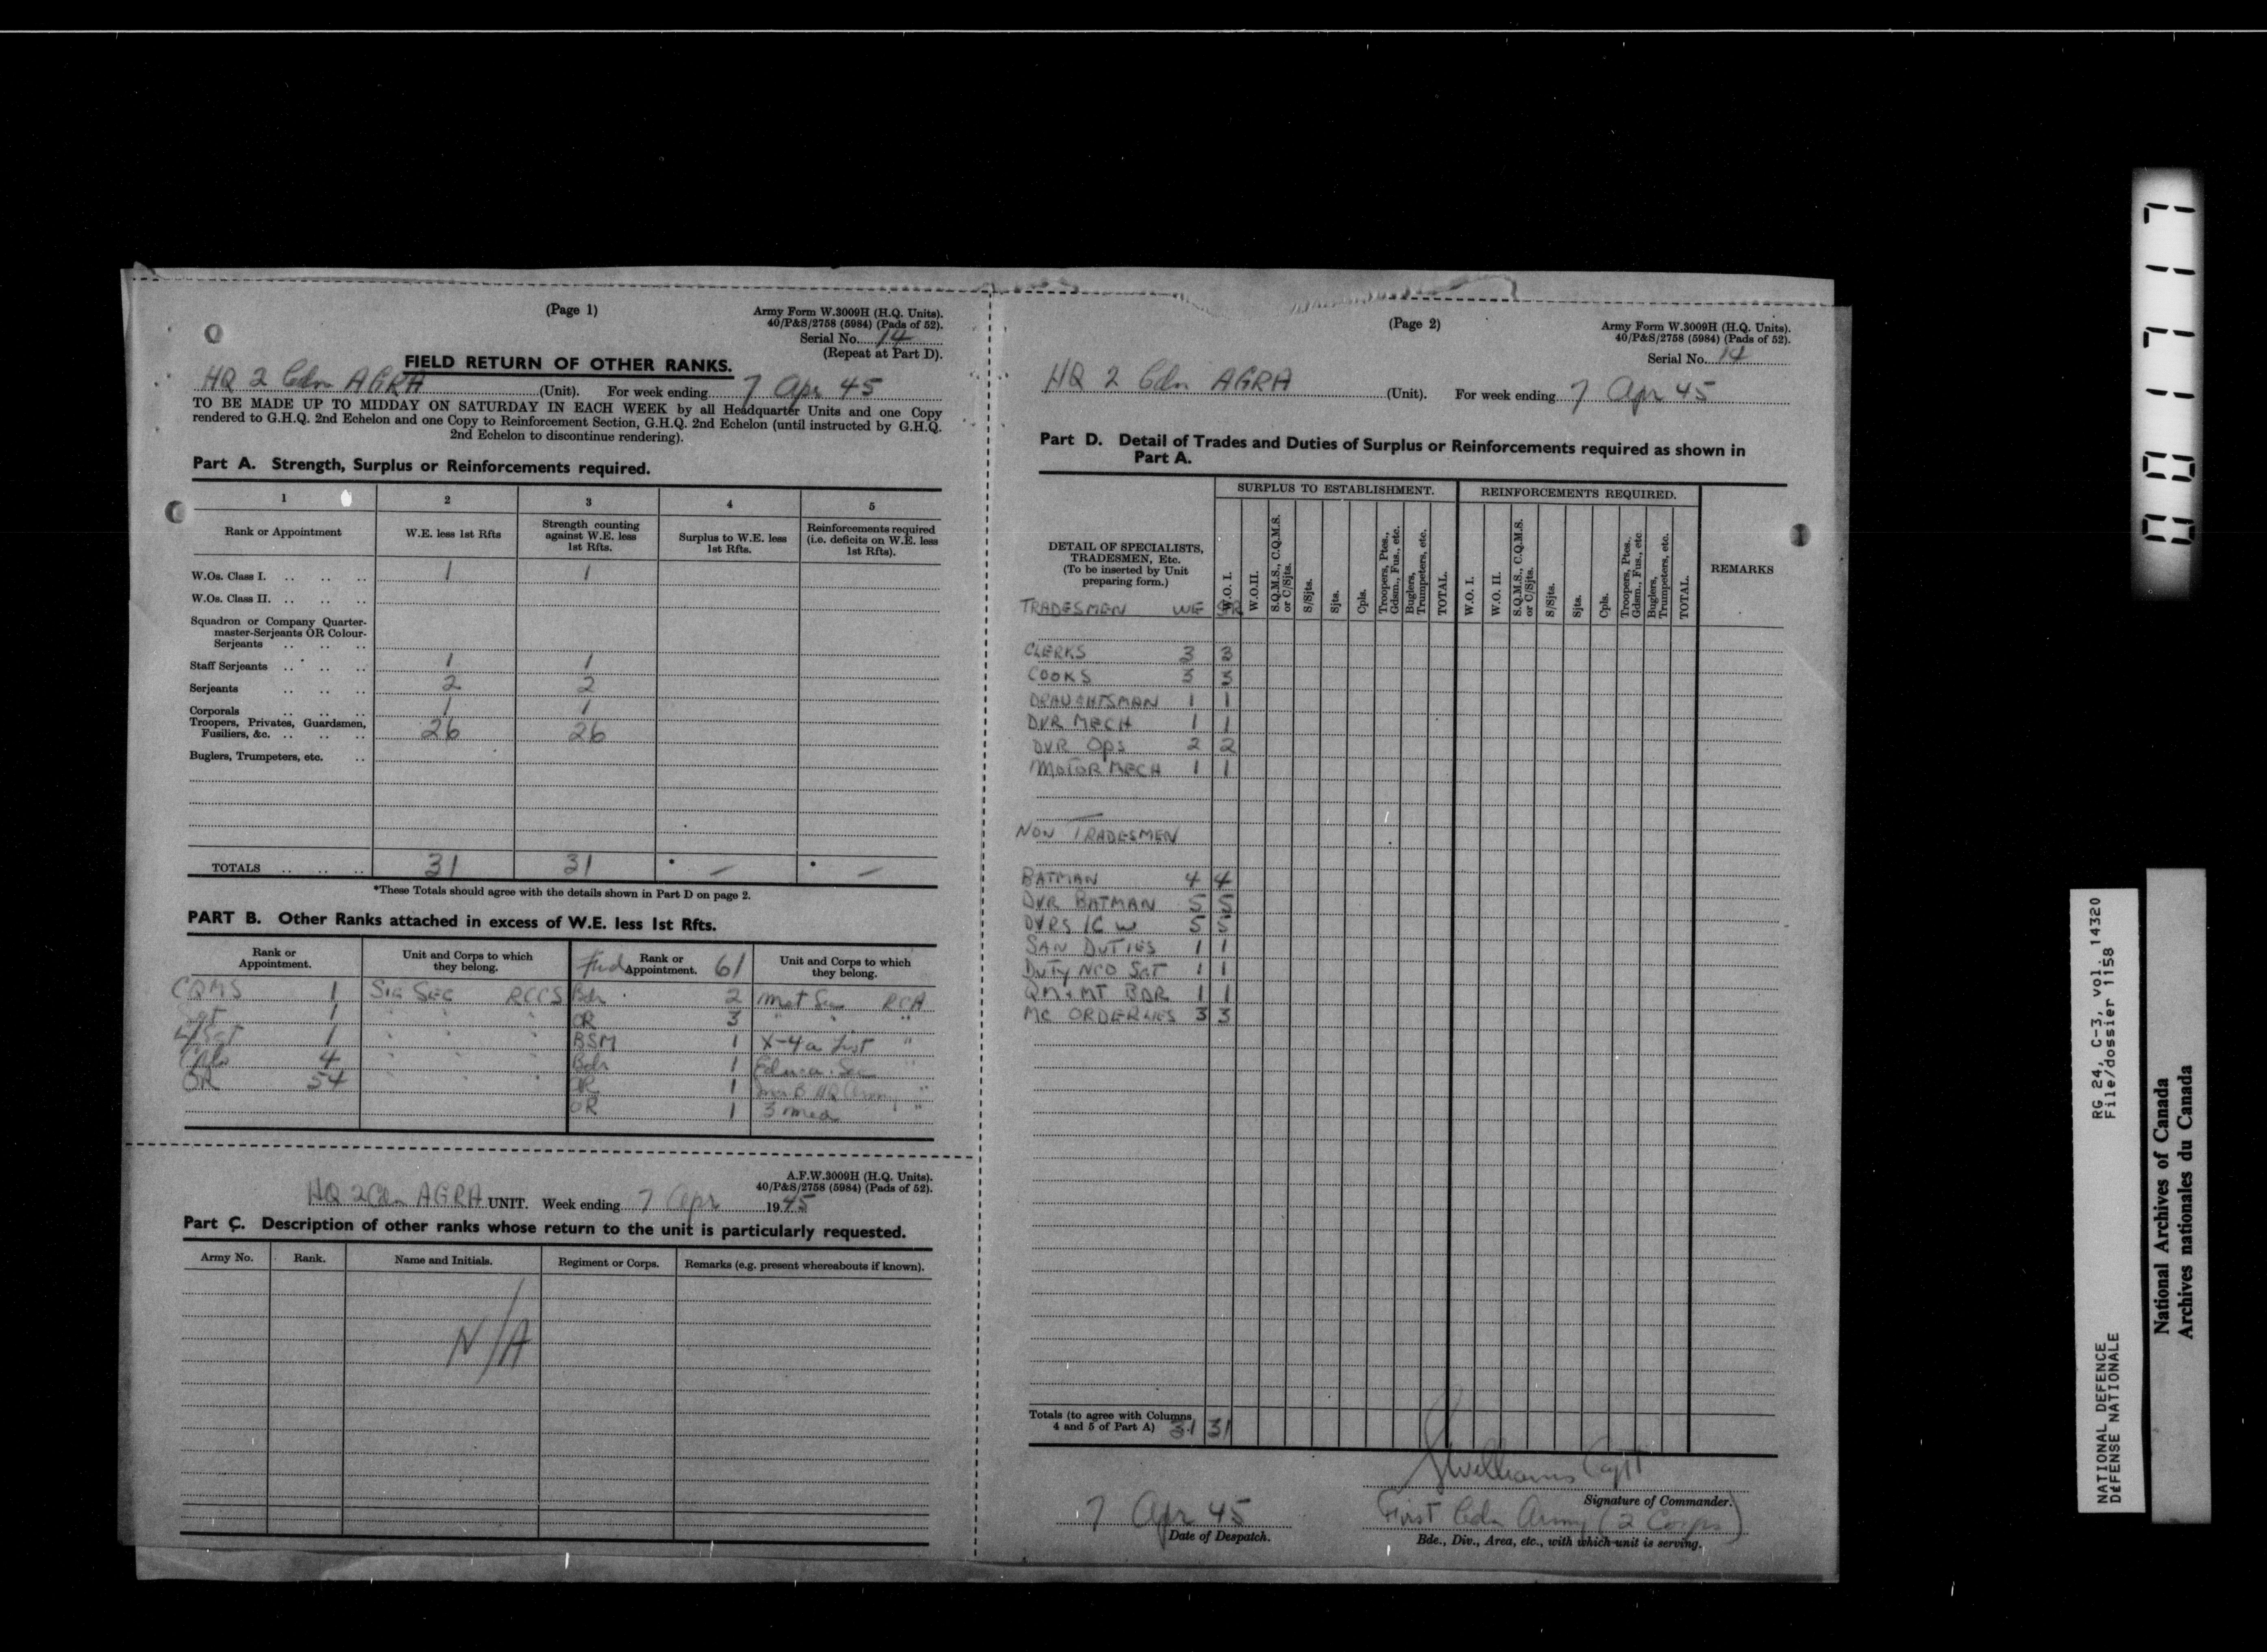 (Page 1)
Army Form W.3009H (H.Q. Units).
40/P&S/2758 (5984) (Pads of 52).
Serial No. 14
(Repeat at Part D).
FIELD RETURN OF OTHER RANKS.
HQ 2 Cdn AGRA (Unit). For week ending 7 Apr 45
TO BE MADE UP TO MIDDAY ON SATURDAY IN EACH WEEK by all Headquarter Units and one Copy
rendered to G.H.Q. 2nd Echelon and one Copy to Reinforcement Section, G.H.Q. 2nd Echelon (until instructed by G.H.Q.
2nd Echelon to discontinue rendering).
Part A. Strength, Surplus or Reinforcements required.
1 2 3 4 5
Rank or Appointment
W.E. less 1st Rfts
Strength counting
against W.E. less
1st Rfts.
Surplus to W.E. less
1st Rfts.
Reinforcements required
(i.e. deficits on W.E. less
1st Rfts).
W.Os. Class I. .. .. .. 1 1
W.Os. Class II. .. .. ..
Squadron or Company Quarter-
master-Serjeants OR Colour-
Serjeants .. .. ..
Staff Serjeants .. .. .. 1 1
Serjeants .. .. .. 2 2
Corporals .. .. .. 1 1
Troopers, Privates, Guardsmen,
Fusiliers, &c. .. .. .. 26 26
Buglers, Trumpeters, etc. ..
TOTALS .. .. .. 31 31 * — * —
*These Totals should agree with the details shown in Part D on page 2.
PART B. Other Ranks attached in excess of W.E. less 1st Rfts.
Rank or
Appointment.
Unit and Corps to which
they belong.
Fwd Rank or
Appointment. 61
Unit and Corps to which
they belong.
CQMS 1 SIG SEC RCCS Bdr 2 Met Sec RCA
Sgt 1 " " " OR 3 " " "
L/Sgt 1 " " " BSM 1 X-4a List "
Cpls 4 " " " Bdr 1 Educa. Sec "
OR 54 " " " OR 1 B HQ "
OR 1 3 Med "
A.F.W.3009H (H.Q. Units).
40/P&S/2758 (5984) (Pads of 52).
HQ 2 Cdn AGRA UNIT. Week ending 7 Apr 1945
Part C. Description of other ranks whose return to the unit is particularly requested.
Army No. Rank. Name and Initials. Regiment or Corps. Remarks (e.g. present whereabouts if known).
N/A
(Page 2)
Army Form W.3009H (H.Q. Units).
40/P&S/2758 (5984) (Pads of 52).
Serial No. 14
HQ 2 Cdn AGRA (Unit). For week ending 7 Apr 45
Part D. Detail of Trades and Duties of Surplus or Reinforcements required as shown in
Part A.
SURPLUS TO ESTABLISHMENT. REINFORCEMENTS REQUIRED.
DETAIL OF SPECIALISTS,
TRADESMEN, Etc.
(To be inserted by Unit
preparing form.)
W.O. I.
W.O.II.
S.Q.M.S., C.Q.M.S.
or C/Sjts.
S/Sjts.
Sjts.
Cpls.
Troopers, Ptes.,
Gdsmn., Fus., etc.
Buglers,
Trumpeters, etc.
TOTAL.
W.O. I.
W.O. II.
S.Q.M.S., C.Q.M.S.
or C/Sjts.
S/Sjts.
Sjts.
Cpls.
Troopers, Ptes.,
Gdsmn., Fus., etc.
Buglers,
Trumpeters, etc.
TOTAL.
REMARKS
TRADESMEN WE STR
CLERKS 3 3
COOKS 3 3
DRAUGHTSMAN 1 1
DVR MECH 1 1
DVR Ops 2 2
MOTOR MECH 1 1
NON TRADESMEN
BATMAN 4 4
DVR BATMAN 5 5
DVRS IC W 5 5
SAN DUTIES 1 1
DUTY NCO SGT 1 1
QM & MT BDR 1 1
MC ORDERLIES 3 3
Totals (to agree with Columns
4 and 5 of Part A) 31 31
Williams Capt
Signature of Commander.
7 Apr 45
Date of Despatch.
First Cdn Army (2 Corps)
Bde., Div., Area, etc., with which unit is serving.
NATIONAL DEFENCE RG 24, C-3, vol. 14320
DÉFENSE NATIONALE File/dossier 1158
National Archives of Canada
Archives nationales du Canada